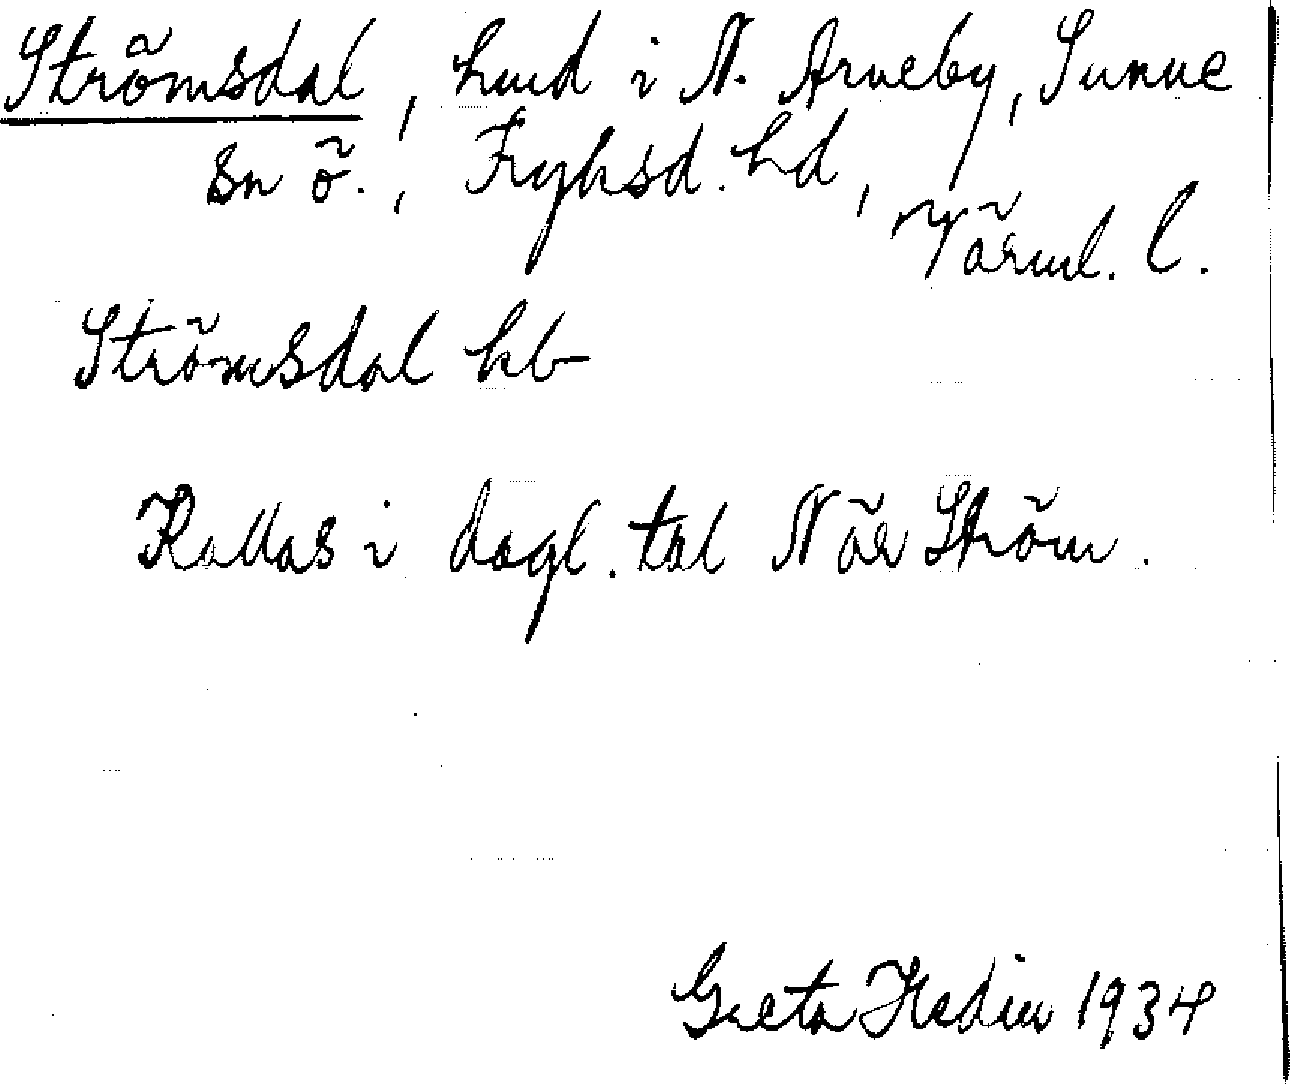 Strömsdal, hmd i N. Arneby, Sunne
sn ö., Fryksd. hd,
Värml. l.
Strömsdal kb
Kallas i dagl. tal När Ström.
Greta Hedin 1934